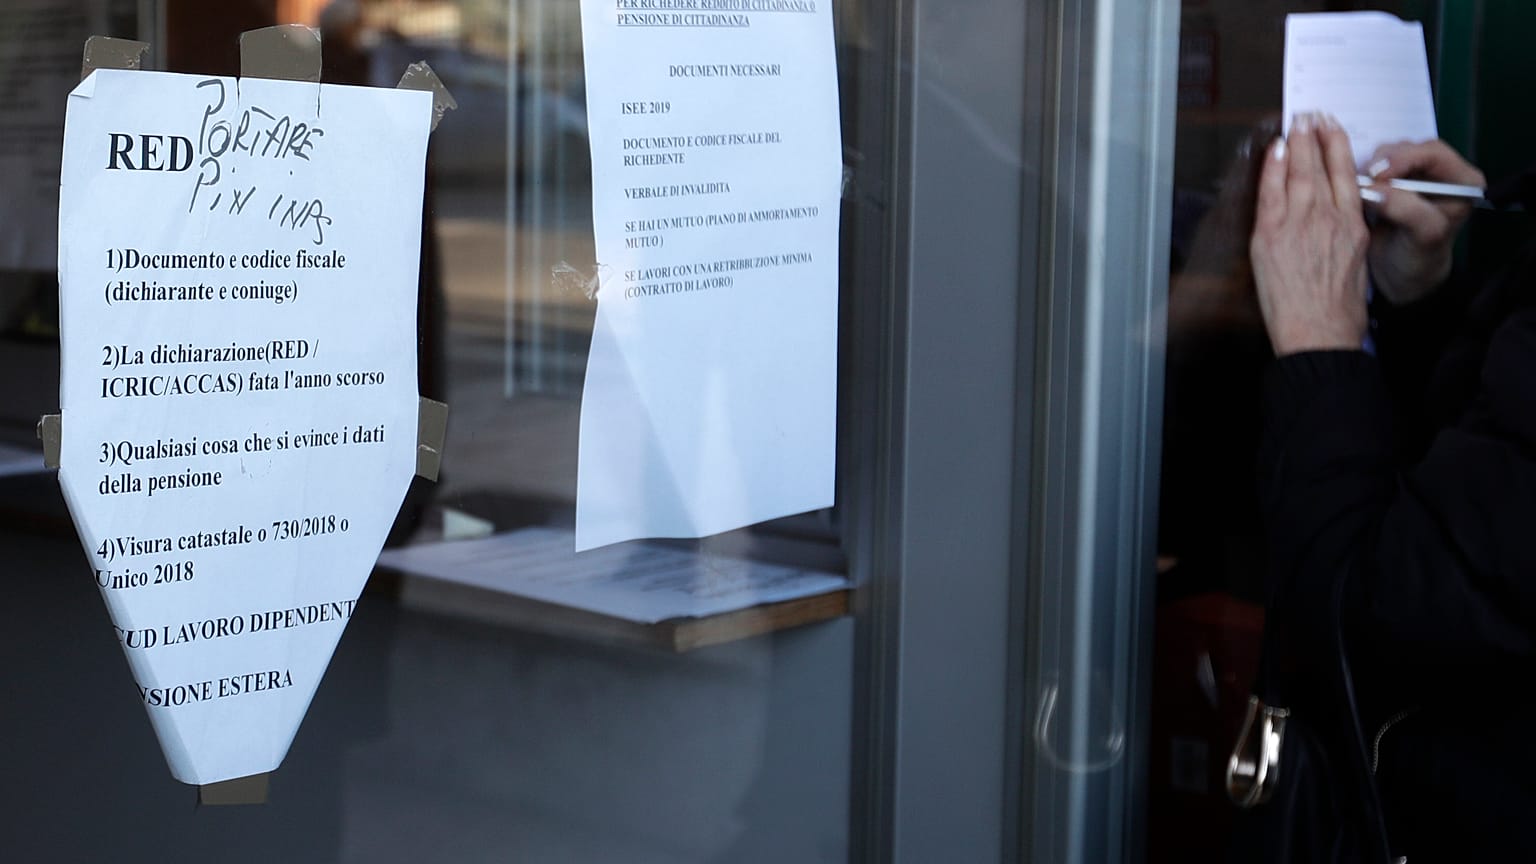 RED
PORTARE
PiN iNPS
1)Documento e codice fiscale
(dichiarante e coniuge)
2)La dichiarazione(RED /
ICRIC/ACCAS) fata l'anno scorso
3)Qualsiasi cosa che si evince i dati
della pensione
4)Visura catastale o 730/2018 o
Unico 2018
CUD LAVORO DIPENDENT
NSIONE ESTERA
PER RICHEDERE REDDITO DI CITTADINANZA O
PENSIONE DI CITTADINANZA
DOCUMENTI NECESSARI
ISEE 2019
DOCUMENTO E CODICE FISCALE DEL
RICHEDENTE
VERBALE DI INVALIDITA
SE HAI UN MUTUO (PIANO DI AMMORTAMENTO
MUTUO )
SE LAVORI CON UNA RETRIBBUZIONE MINIMA
(CONTRATTO DI LAVORO)